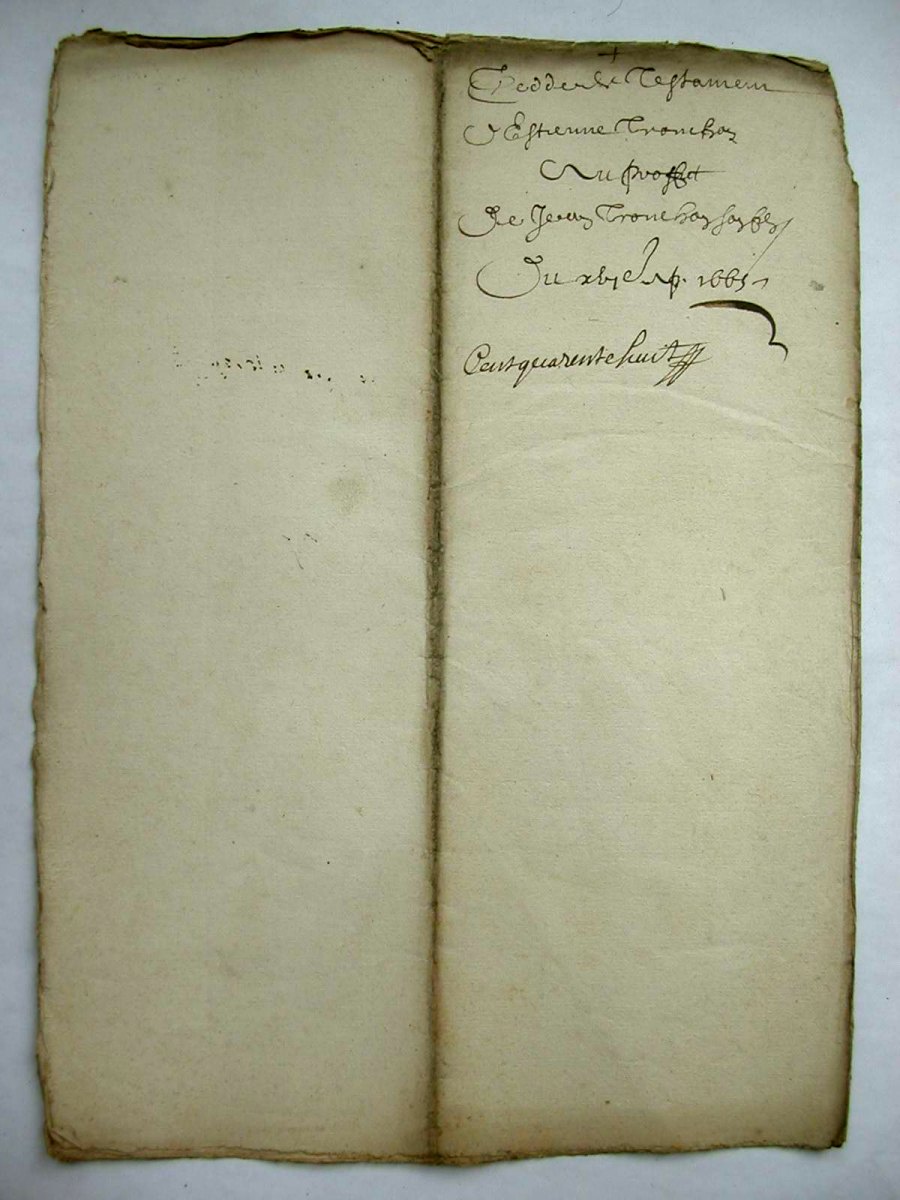 +
Testament
d'Estienne Tronchon
Au proffict
De Jean Tronchon son filz
Du 1665
Cent quarente huit